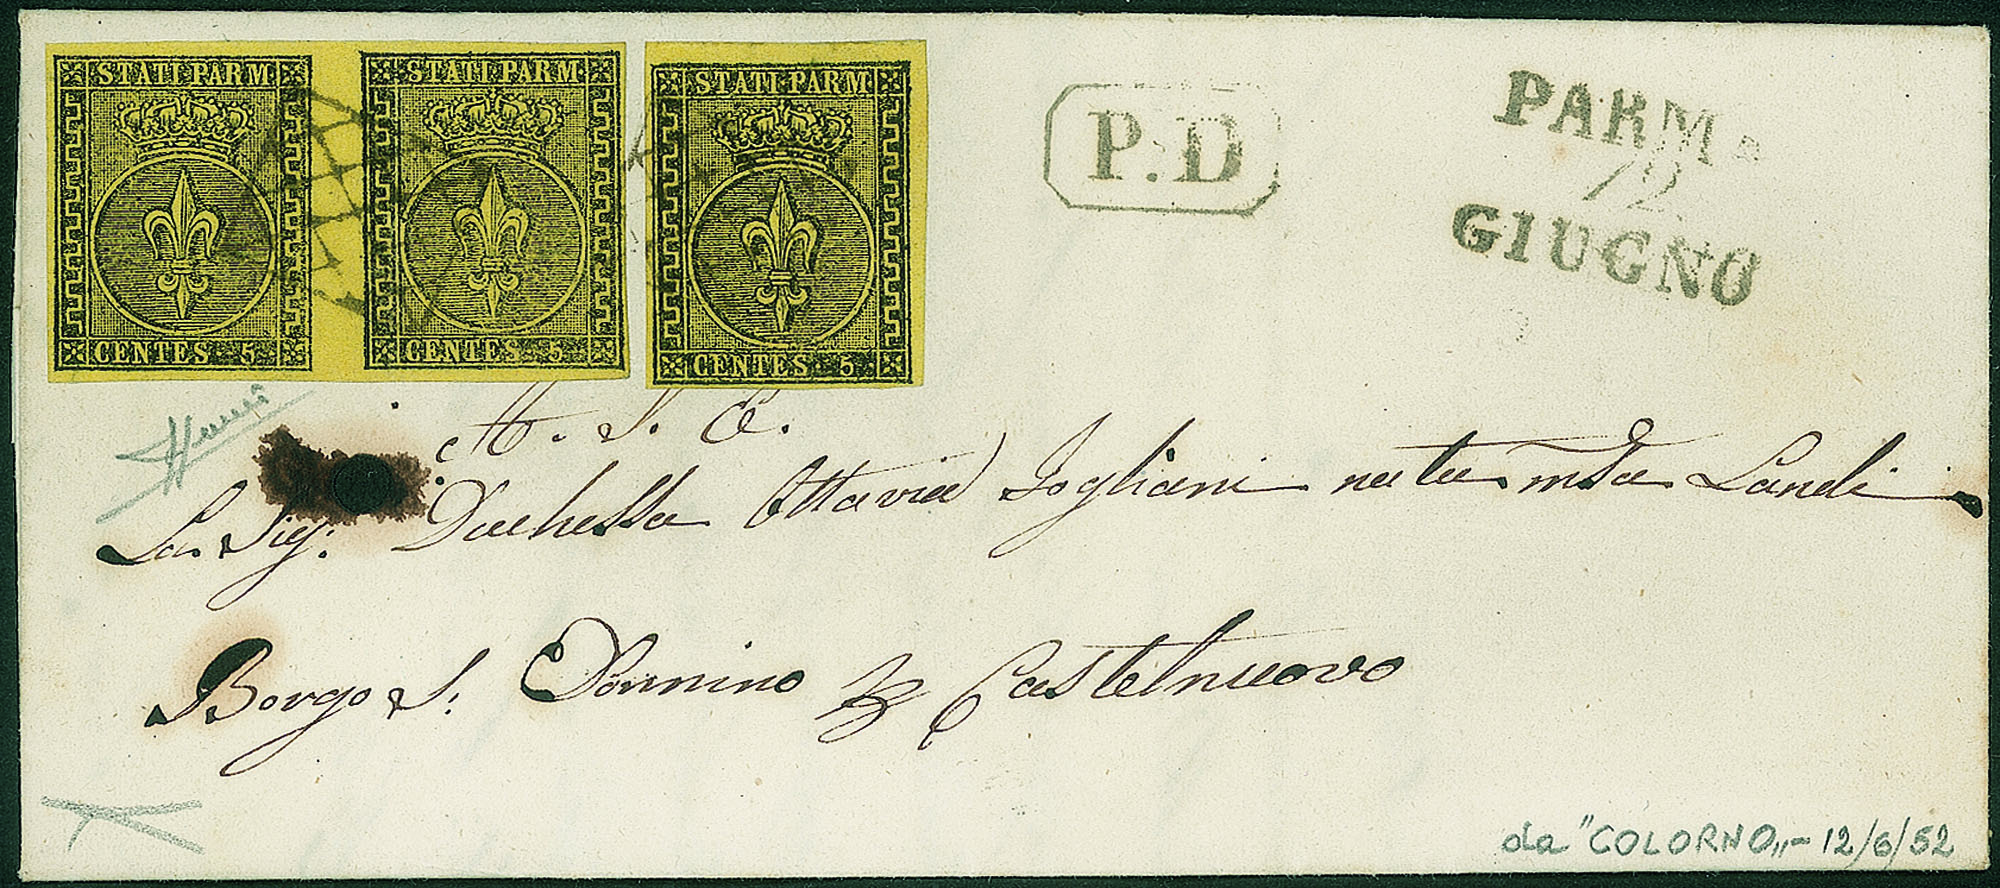 STATI PARM STATI PARM STATI PARM
CENTES. 5 CENTES. 5 CENTES. 5
P.D
PARMA
12
GIUGNO
A. S. E.
La Sig: Duchessa Ottavia Fogliani nata Landi
Borgo S. Donnino Castelnuovo
da "COLORNO„- 12/6/52